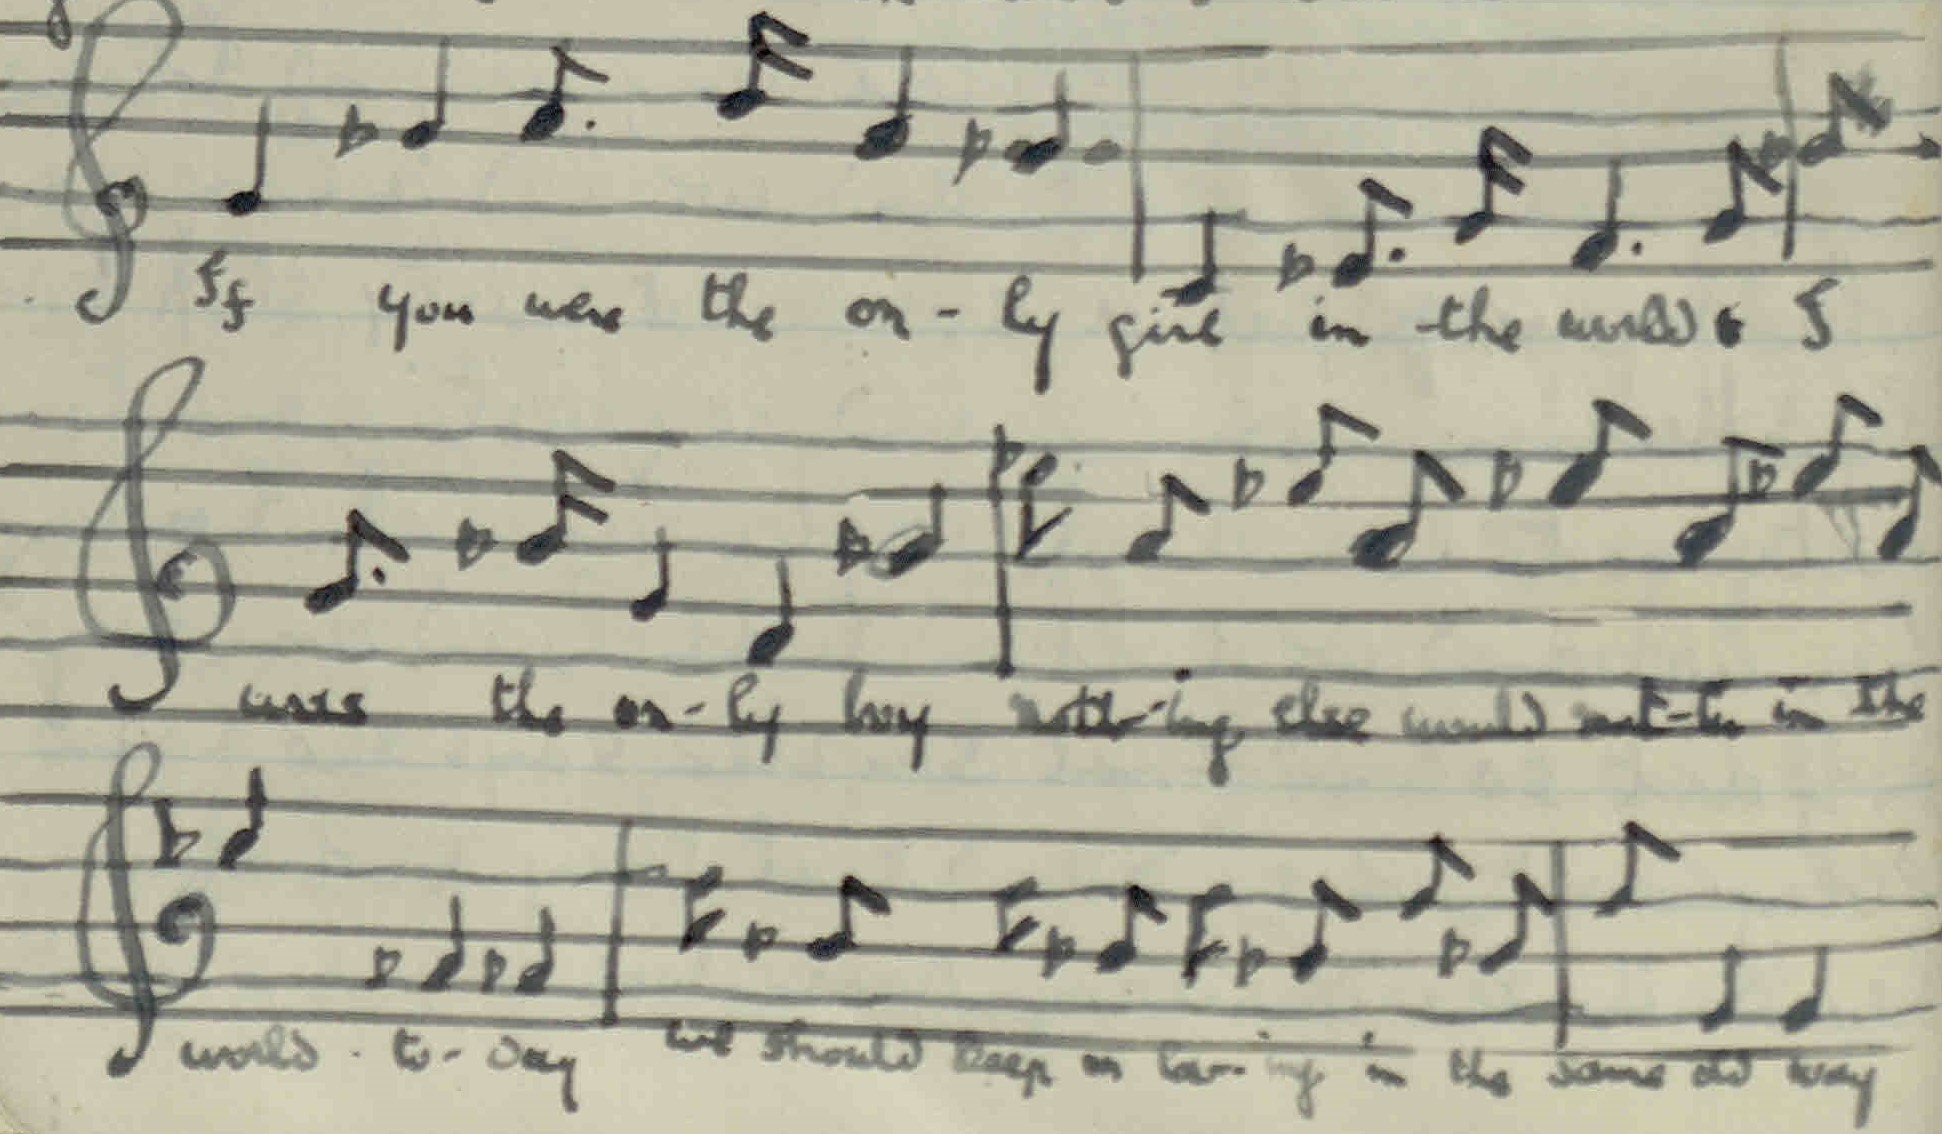 If you were the on-ly girl in the world & I
were the on-ly boy noth-ing else would mat-ter in the
world to-day we should keep on lov-ing in the same old way